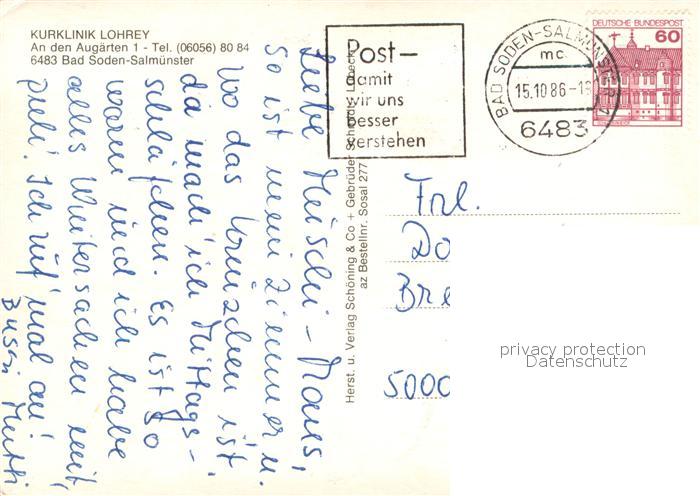 KURKLINIK LOHREY
An den Augärten 1 - Tel. (06056) 80 84
6483 Bad Soden-Salmünster
Post—
damit
wir uns
besser
verstehen
BAD SODEN-SALMÜNSTER
mc
15.10.86-18
6483
DEUTSCHE BUNDESPOST
60
Liebe Muschi-Maus,
so ist mein Zimmer u.
wo das Kreuzchen ist,
da mach' ich Mittags-
schläfchen. Es ist so
warm und ich habe
alles Wintersachen mit,
Ich ruf' mal an!
Bussi Mutti
Herst. u. Verlag Schöning & Co + Gebrüder Schmidt, Lübeck
az Bestellnr. Sosal 277
Frl.
Do
Bre
5000
privacy protection
Datenschutz